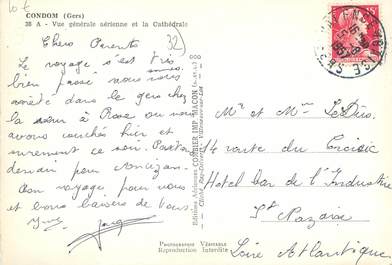 10 €
CONDOM (Gers)
28 A - Vue générale aérienne et la Cathédrale
32)
Chers Parents
Le voyage s'est très
bien passé nous nous sommes
arrêté dans le gers chez
la sœur à Rose ou nous
avons couchés hier et
surement ce soir.
demain pour
Bon voyage pour vous
et bons baisers de tous.
Yves
Editions Aériennes COMBIER IMP. MACON
PHOTOGRAPHIE VÉRITABLE
Reproduction Interdite
Mr et Mme
14 route du Croisic
Hotel bar de l'Industrie
St Nazaire
Loire Atlantique